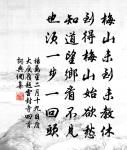 梅山未到未教休
到得梅山始欲愁
知道望鄉看不見
也須一步一回頭
楊萬里二月十九日度
大庾嶺題雲封寺四首
詞典網集